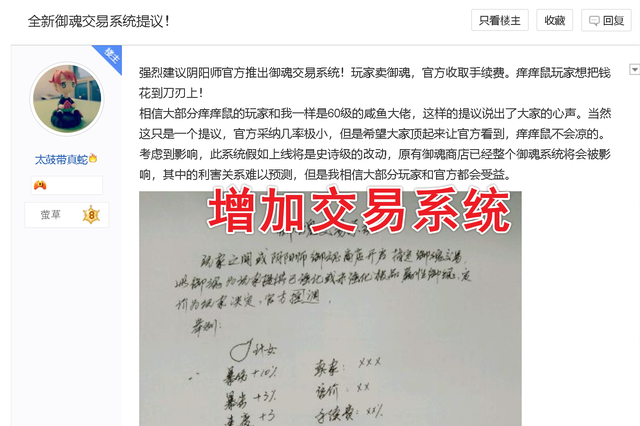 全新御魂交易系统提议！
只看楼主
收藏
回复
楼主
强烈建议阴阳师官方推出御魂交易系统！玩家卖御魂，官方收取手续费。痒痒鼠玩家想把钱
花到刀刃上！
相信大部分痒痒鼠的玩家和我一样是60级的咸鱼大佬，这样的提议说出了大家的心声。当然
这只是一个提议，官方采纳几率极小，但是希望大家顶起来让官方看到，痒痒鼠不会凉的。
考虑到影响，此系统假如上线将是史诗级的改动，原有御魂商店已经整个御魂系统将会被影
响，其中的利害关系难以预测，但是我相信大部分玩家和官方都会受益。
太鼓带真蛇
萤草
8
增加交易系统
玩家之间或阴阳师御魂商店开启 指定御魂交易
价为玩家决定，官方
举例：
针女
暴伤+10%
卖家：×××
暴击+3%
售价：××
速度+3
手续费：××%